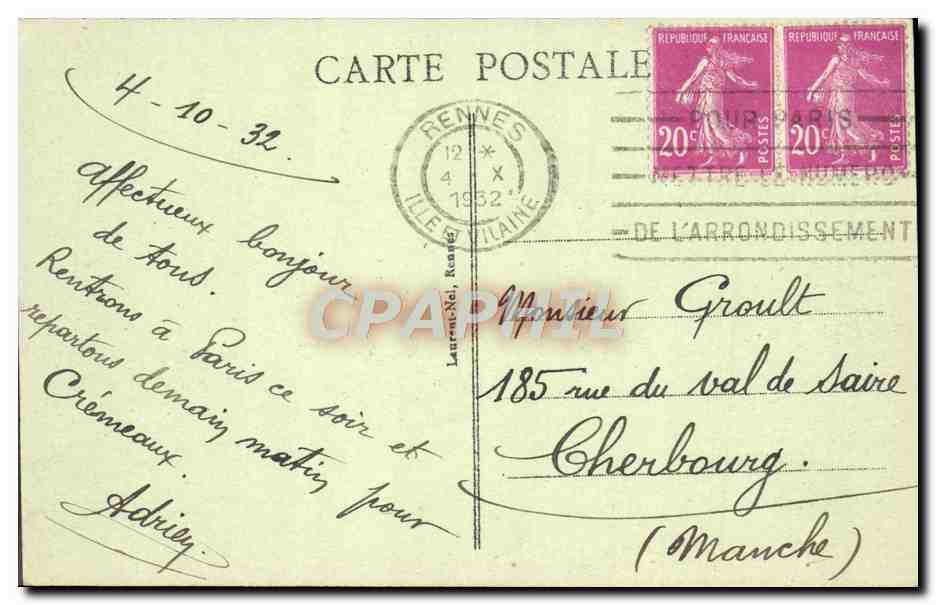 CARTE POSTALE
REPUBLIQUE FRANÇAISE
20c
POSTES
REPUBLIQUE FRANÇAISE
20c
POSTES
RENNES
12 *
4 X
1932
ILLE ET VILAINE
POUR PARIS
METTRE LE NUMERO
DE L'ARRONDISSEMENT
4-10-32.
Affectueux bonjour
de tous.
Rentrons à Paris ce soir et
repartons demain matin pour
Crémeaux.
Adrien.
Laurent-Nel, Rennes
CPAPHIL
Monsieur Groult
185 rue du val de Saire
Cherbourg.
(Manche)